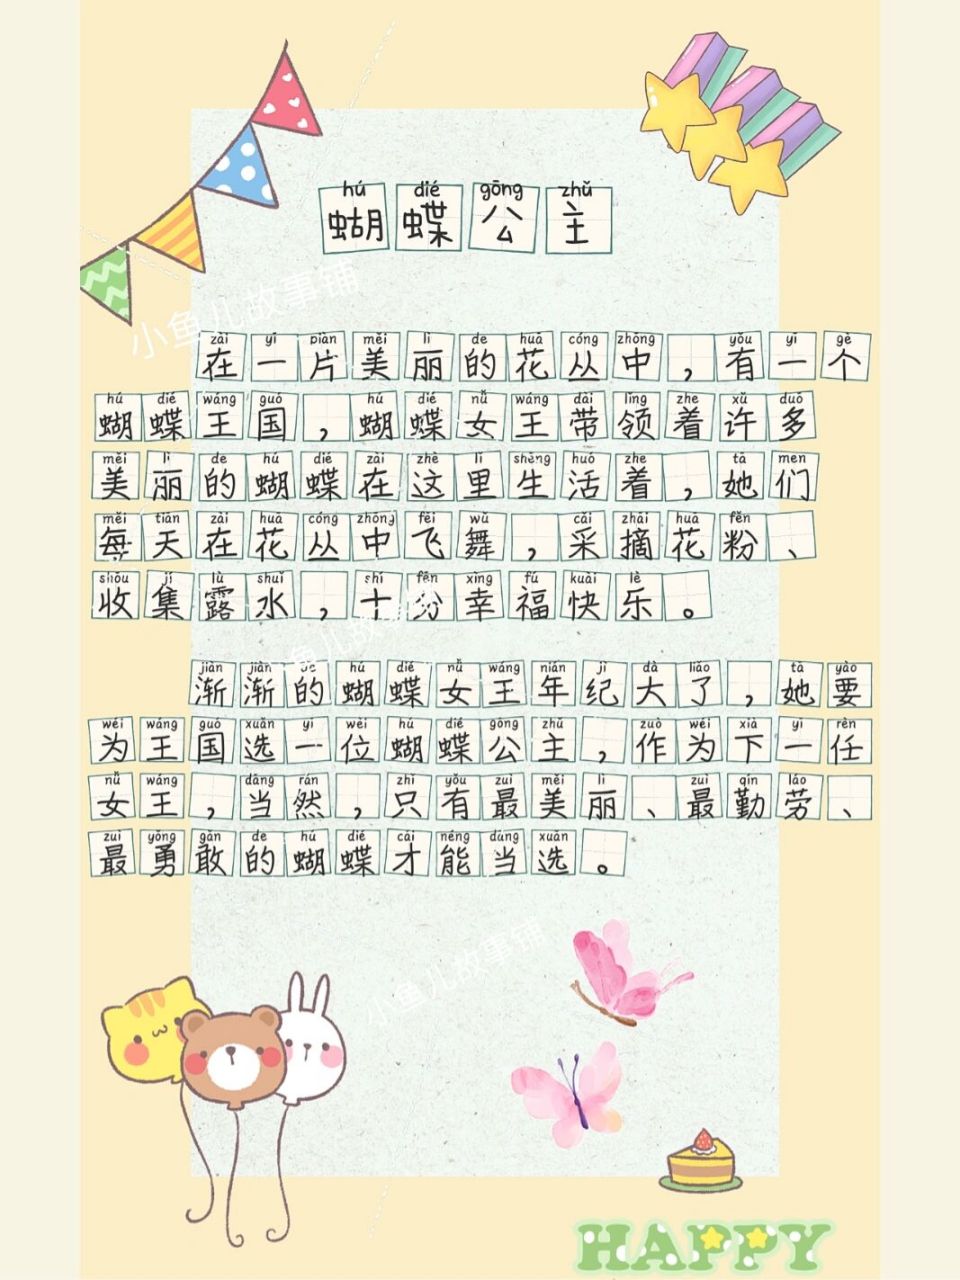 hú dié gōng zhǔ
蝴蝶公主
小鱼儿故事铺
zài yī piàn měi lì de huā cóng zhōng yǒu yī gè
在一片美丽的花丛中，有一个
hú dié wáng guó hú dié nǚ wáng dài lǐng zhe xǔ duō
蝴蝶王国，蝴蝶女王带领着许多
měi lì de hú dié zài zhè lǐ shēng huó zhe tā men
美丽的蝴蝶在这里生活着，她们
měi tiān zài huā cóng zhōng fēi wǔ cǎi zhāi huā fěn
每天在花丛中飞舞，采摘花粉、
shōu jí lù shuǐ shí fēn xìng fú kuài lè
收集露水，十分幸福快乐。
小鱼儿故事铺
jiàn jiàn de hú dié nǚ wáng nián jì dà liǎo tā yào
渐渐的蝴蝶女王年纪大了，她要
wéi wáng guó xuǎn yī wèi hú dié gōng zhǔ zuò wéi xià yī rèn
为王国选一位蝴蝶公主，作为下一任
nǚ wáng dāng rán zhǐ yǒu zuì měi lì zuì qín láo
女王，当然，只有最美丽、最勤劳、
zuì yǒng gǎn de hú dié cái néng dāng xuǎn
最勇敢的蝴蝶才能当选。
小鱼儿故事铺
HAPPY